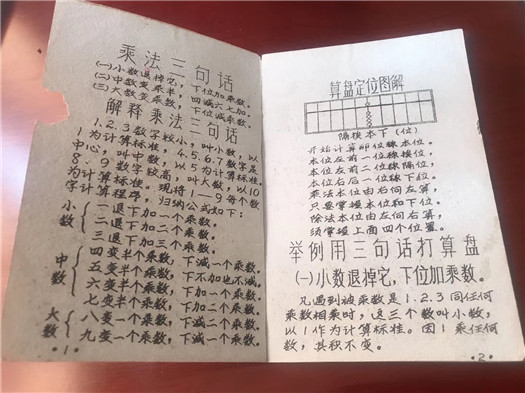 乘法三句话
(一)小数退掉它，下位加乘数。
(二)中数变乘半，四减六七加。
(三)大数变乘数，下位减乘数。
解释乘法三句话
1.2.3数字较小，叫小数，以
1为计算标准，4.5.6.7数字是
中心，叫中数，以5为计算标准，
8、9数字较高，叫大数，以10
为计算标准。现将1—9每个数
字计算程序，归纳公式如下：
小数
一退下加一个乘数。
二退下加二个乘数。
三退下加三个乘数。
中数
四变半个乘数，下减一个乘数。
五变半个乘数，下不加也不减。
六变半个乘数，下加一个乘数。
七变半个乘数，下加二个乘数。
大数
八变一个乘数，下减二个乘数。
九变一个乘数，下减一个乘数。
·1·
算盘定位图解
隔挨本下(位)
开始计算即位稱本位。
本位左前一位稱挨位，
本位左前二位稱隔位，
本位右后一位稱下位。
乘法本位由右向左算，
只要掌握本位和下位。
除法本位由左向右算，
须掌握上面四个位置。
举例用三句话打算盘
(一)小数退掉它，下位加乘数。
凡遇到被乘数是1.2.3同任何
乘数相乘时，这三个数叫小数，
以1作为计算标准。因1乘任何
数，其积不变。
·2·